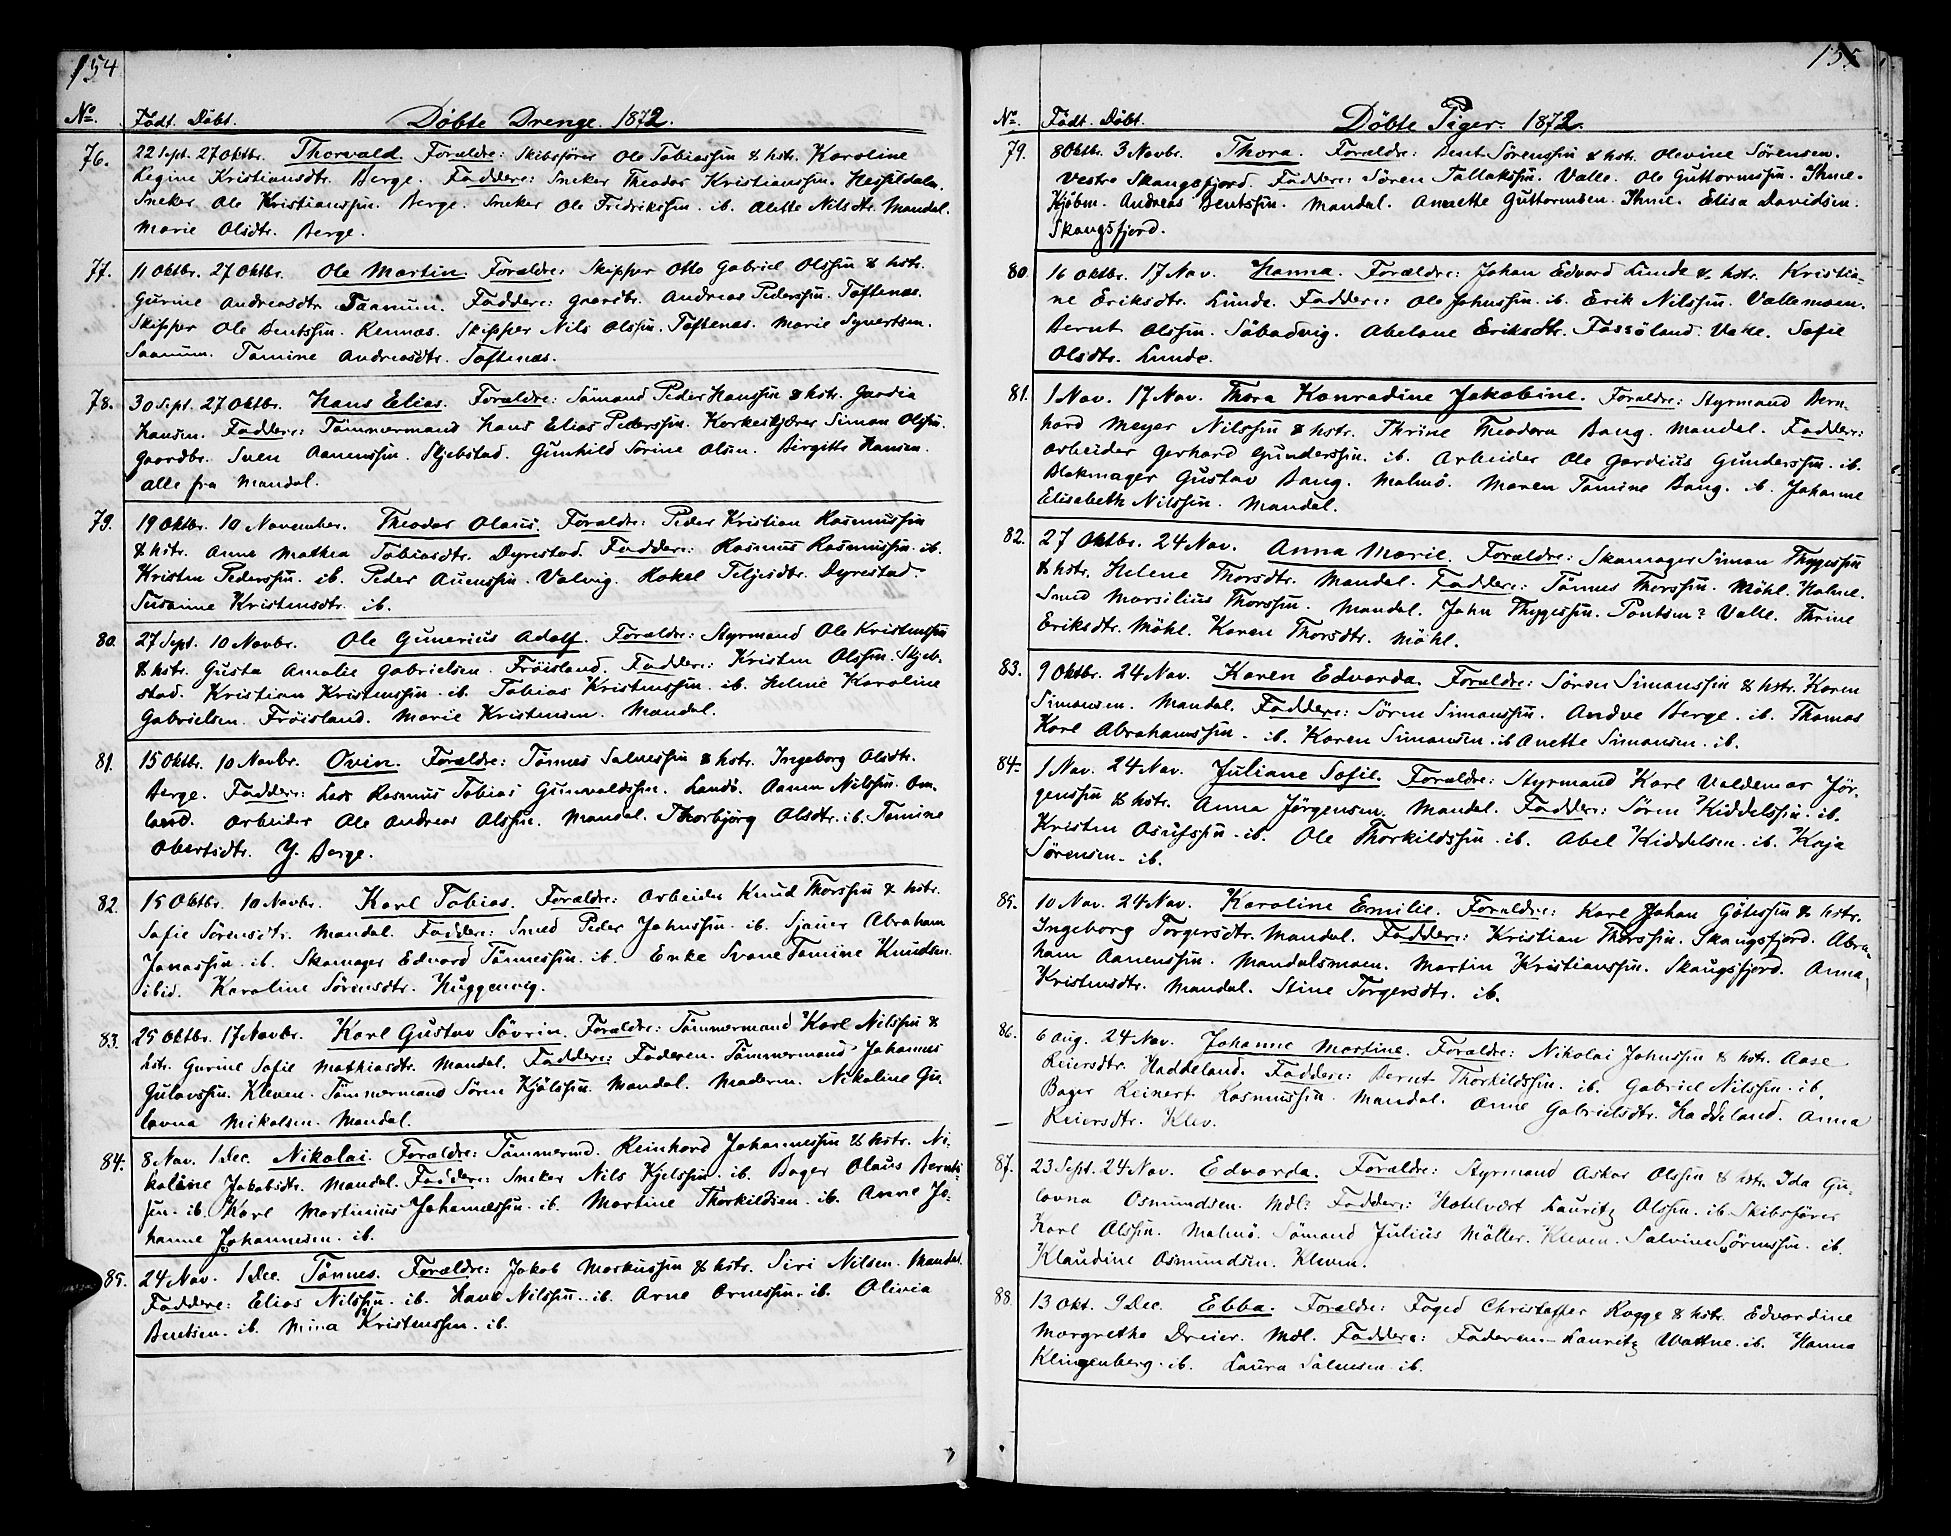 154
No. Födt. Döbt. Döbte Drenge. 1872.
76. 22 Sept. 27 Oktbr. Thorvald. Forældre: Skibsförer Ole Tobiassen & hstr. Karoline
Regine Kristiansdtr. Berge. Faddere: Sneker Theodor Kristianssen. Hesshildalen.
Sneker Ole Kristianssen. Berge. Sneker Ole Fredrikssen. ib. Alette Nilsdtr. Mandal.
Marie Olsdtr. Berge.
77. 11 Oktbr. 27 Oktbr. Ole Martin. Forældre: Skipper Otto Gabriel Olssen & hstr.
Gurine Andreasdtr. Saanum. Faddere: Gaardbr. Andreas Pederssen. Toftenæs.
Skipper Ole Bentssen. Rennæs. Skipper Nils Olssen. Toftenæs. Marie Syvertsen.
Saanum. Tomine Andreasdtr. Toftenæs.
78. 30 Sept. 27 Oktbr. Hans Elias. Forældre: Sömand Peder Hanssen & hstr. Gardia
Hansen. Faddere: Tömmermand Hans Elias Pederssen. Korkeskjærer Simon Olssen.
Gaardbr. Sven Aanenssen. Skjebstad. Gunhild Sörine Olsen. Birgitte Hansen.
alle fra Mandal.
79. 19 Oktbr. 10 November. Theodor Olaus. Forældre: Peder Kristian Rasmussen
& hstr. Anne Mathea Tobiasdtr. Dyrestad. Faddere: Rasmus Rasmussen. ib.
Kristen Pederssen. ib. Peder Auenssen. Valvig. Rakel Teljesdtr. Dyrestad.
Susanne Kristensdtr. ib.
80. 27 Sept. 10 Novbr. Ole Gunarius Adolf. Forældre: Styrmand Ole Kristenssen
& hstr. Gusta Amalie Gabrielsen. Fröisland. Faddere: Kristen Olssen. Skjeb-
stad. Kristian Kristenssen. ib. Tobias Kristenssen. ib. Helene Karoline
Gabrielsen. Fröisland. Marie Kristensen. Mandal.
81. 15 Oktbr. 10 Novbr. Ovin. Forældre: Tönnes Salvessen & hstr. Ingeborg Olsdtr.
Berge. Faddere: Lods Rasmus Tobias Gunvaldssen. Landö. Aanen Nilssen. Om-
land. Arbeider Ole Andreas Olssen. Mandal. Thorbjörg Olsdtr. ib. Tomine
Obertsdtr. Y. Berge.
82. 15 Oktbr. 10 Novbr. Karl Tobias. Forældre: Arbeider Knud Thorssen & hstr.
Sofie Sörensdtr. Mandal. Faddere: Smed Peder Johnssen. ib. Sjauer Abraham
Jonassen. ib. Skomager Edvard Tönnessen. ib. Enke Svane Tomine Knudsen.
ibid. Karoline Sörensdtr. Huggenvig.
83. 25 Oktbr. 17 Novbr. Karl Gustav Sövrin. Forældre: Tömmermand Karl Nilssen &
hstr. Gurine Sofie Mathiasdtr. Mandal. Faddere: Faderen. Tömmermand Johannes
Gulovssen. Kleven. Tömmermand Sören Kjölssen. Mandal. Moderen. Nikoline Gu-
lovna Mikalsen. Mandal.
84. 8 Nov. 1 Dec. Nikolai. Forældre: Tömmermd. Reinhard Johannessen & hstr. Ni-
koline Jakobsdtr. Mandal. Faddere: Sneker Nils Kjelssen. ib. Bager Olaus Bernt-
sen. ib. Karl Martinius Johannessen. ib. Martine Thorkildsen. ib. Anne Jo-
hanne Johannesen. ib.
85. 24 Nov. 1 Dec. Tönnes. Forældre: Jakob Markussen & hstr. Siri Nilsen. Mandal.
Faddere: Elias Nilssen. ib. Hans Nilssen. ib. Arne Arnessen. ib. Olivia
Bentsen. ib. Mina Kristenssen. ib.
155
No. Födt. Döbt. Döbte Piger. 1872.
79. 8 Oktbr. 3 Novbr. Thora. Forældre: Bent Sörenssen & hstr. Olevine Sörensen.
Vestre Skaugsfjord. Faddere: Sören Tallakssen. Valle. Ole Guttormssen. Ihme.
Kjöbm. Andreas Bentssen. Mandal. Anette Guttormsen. Ihme. Elisa Davidsen.
Skaugsfjord.
80. 16 Oktbr. 17 Nov. Hanna. Forældre: Johan Edvard Lunde & hstr. Kristia-
ne Eriksdtr. Lunde. Faddere: Ole Johnssen. ib. Erik Nilssen. Vallemoen.
Bernt Olssen. Såbadvig. Abelone Eriksdtr. Fassöland. Valle. Sofie
Olsdtr. Lunde.
81. 1 Nov. 17 Nov. Thora Konradine Jakobine. Forældre: Styrmand Bern-
hard Meyer Nilssen & hstr. Thrine Theodora Bang. Mandal. Faddere:
Arbeider Gerhard Gunderssen. ib. Arbeider Ole Gardius Gunderssen. ib.
Blokmager Gustav Bang. Malmö. Maren Tomine Bang. ib. Johanne
Elisabeth Nilssen. Mandal.
82. 27 Oktbr. 24 Nov. Anna Marie. Forældre: Skomager Simon Thygessen
& hstr. Helene Thorsdtr. Mandal. Faddere: Tönnes Thorssen. Möhl. Halme.
Smed Marsilius Thorssen. Mandal. John Thygessen. Pontsen? Valle. Thrine
Eriksdtr. Möhl. Karen Thorsdtr. Möhl.
83. 9 Oktbr. 24 Nov. Karen Edvarda. Forældre: Sören Simonssen & hstr. Karen
Simonsen. Mandal. Faddere: Sören Simonssen. Andve Berge. ib. Thomas
Karl Abrahamssen. ib. Karen Simonsen. ib Anette Simonsen. ib.
84. 1 Nov. 24 Nov. Juliane Sofie. Forældre: Styrmand Karl Valdemar Jör-
genssen & hstr. Anna Jörgensen. Mandal. Faddere: Sören Kiddelssen. ib.
Kristen Osufssen. ib. Ole Thorkildssen. ib. Abel Kiddelsen. ib. Kaja
Sörensen. ib.
85. 10 Nov. 24 Nov. Karoline Emilie. Forældre: Karl Johan Götessen & hstr.
Ingeborg Torgersdtr. Mandal. Faddere: Kristian Thorssen. Skaugsfjord. Abra-
ham Aanenssen. Mandalsmoen. Martin Kristianssen. Skaugsfjord. Anna
Kristensdtr. Mandal. Stine Torgersdtr. ib.
86. 6 Aug. 24 Nov. Johanne Martine. Forældre: Nikolai Johnssen & hstr. Aase
Reiersdtr. Haddeland. Faddere: Bernt Thorkildssen. ib. Gabriel Nilssen. ib.
Bager Reinert Rasmussen. Mandal. Anne Gabrielsdtr. Haddeland. Anna
Reiersdtr. Klev.
87. 23 Sept. 24 Nov. Edvarda. Forældre: Styrmand Askar Olssen & hstr. Ida Gu-
lovna Osmundsen. Mdl: Faddere: Hotelvert Lauritz Olssen. ib. Skibsförer
Karl Olssen. Malmö. Sömand Julius Möller. Kleven. Salvine Sörenssen. ib.
Klaudine Osmundsen. Kleven.
88. 13 Okt. 9 Dec. Ebba. Forældre: Foged Christoffer Rogge & hstr. Edvardine
Margrethe Dreier. Mdl. Faddere: Faderen. Lauritz Wattne. ib. Hanna
Klingenberg. ib. Laura Salvesen. ib.